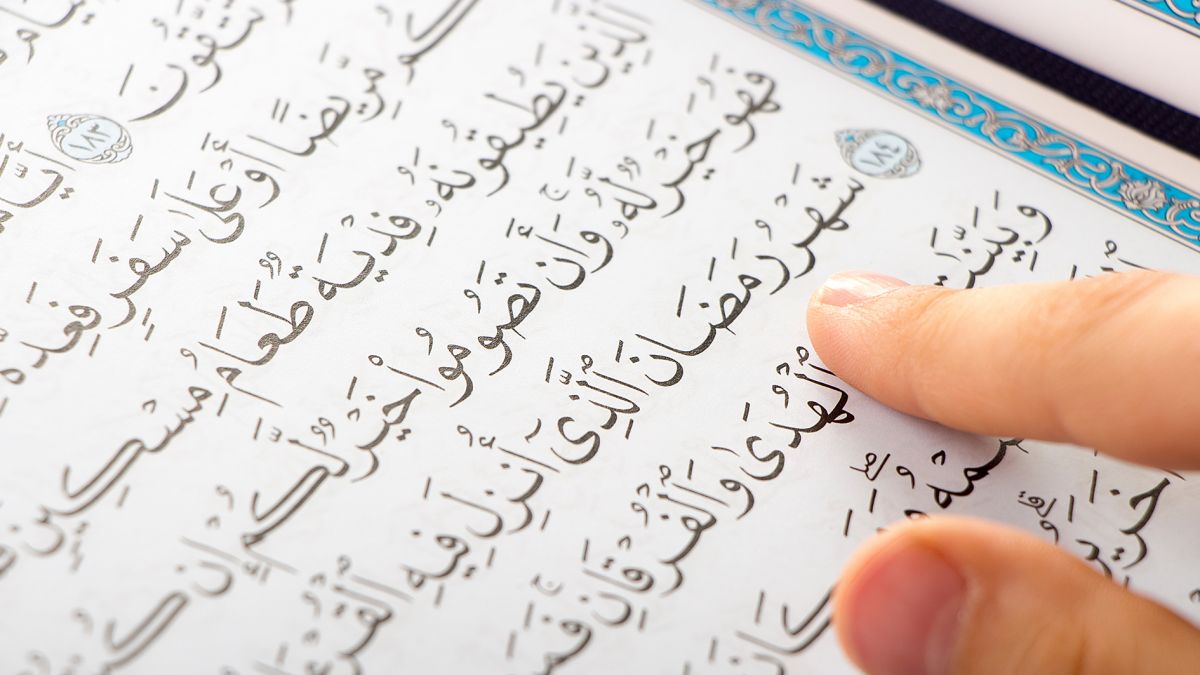 تَتَّقُونَ ١٨٣
كُم مَّرِيضًا أَوْ عَلَىٰ سَفَرٍ فَعِدَّةٌ
ٱلَّذِينَ يُطِيقُونَهُۥ فِدْيَةٌ طَعَامُ مِسْكِينٍ
فَهُوَ خَيْرٌ لَّهُۥ وَأَن تَصُومُوا۟ خَيْرٌ لَّكُمْ إِن
١٨٤ شَهْرُ رَمَضَانَ ٱلَّذِىٓ أُنزِلَ فِيهِ ٱلْقُرْ
وَبَيِّنَـ ٱلْهُدَىٰ وَٱلْفُرْقَانِ فَمَن
كَانَ